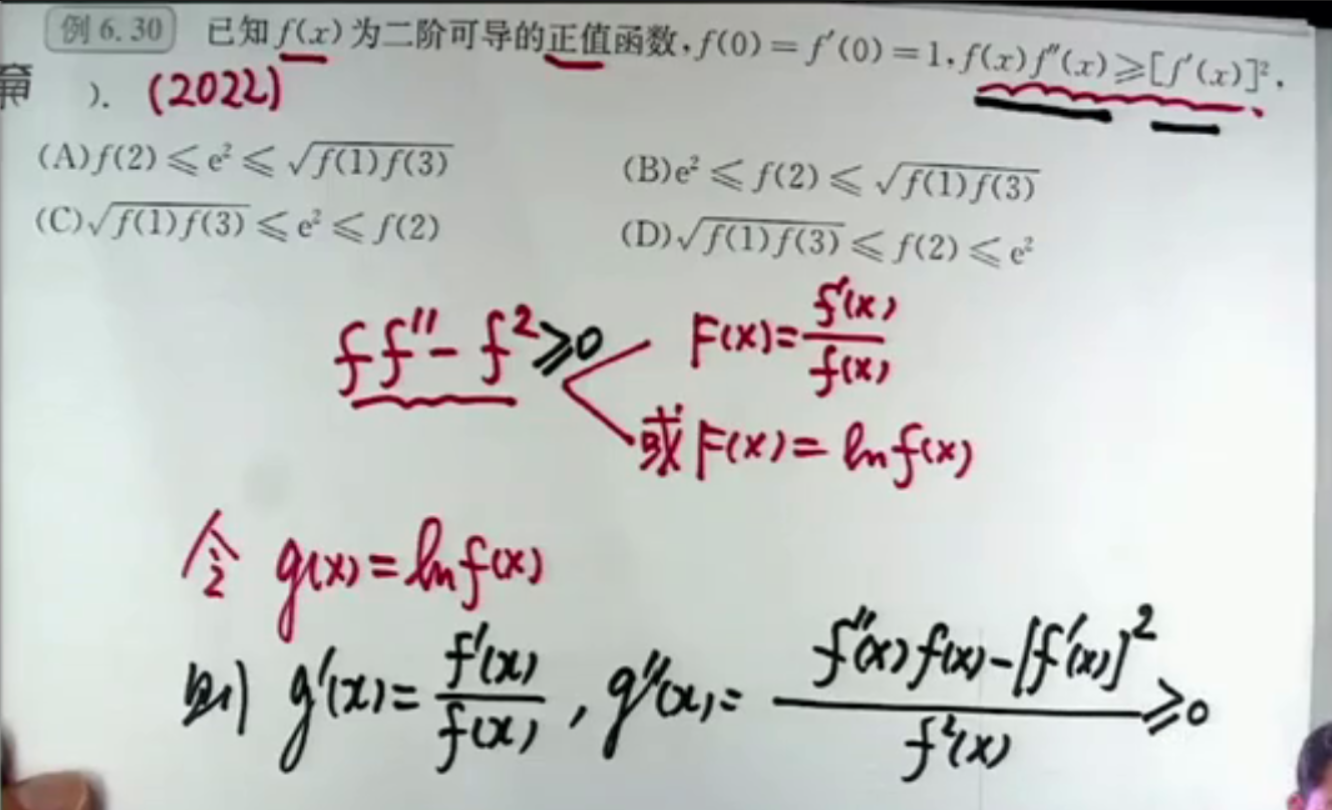 例 6.30 已知 f(x) 为二阶可导的正值函数, f(0) = f′(0) = 1, f(x)f″(x) ⩾ [f′(x)]²,
). (2022)
(A) f(2) ⩽ e² ⩽ √f(1)f(3) (B) e² ⩽ f(2) ⩽ √f(1)f(3)
(C) √f(1)f(3) ⩽ e² ⩽ f(2) (D) √f(1)f(3) ⩽ f(2) ⩽ e²
ff″ - f² ⩾ 0 F(x) = f′(x)/f(x)
或 F(x) = ln f(x)
令 g(x) = ln f(x)
则 g′(x) = f′(x)/f(x) , g″(x) = f″(x)f(x) - [f′(x)]²/f²(x) ⩾ 0